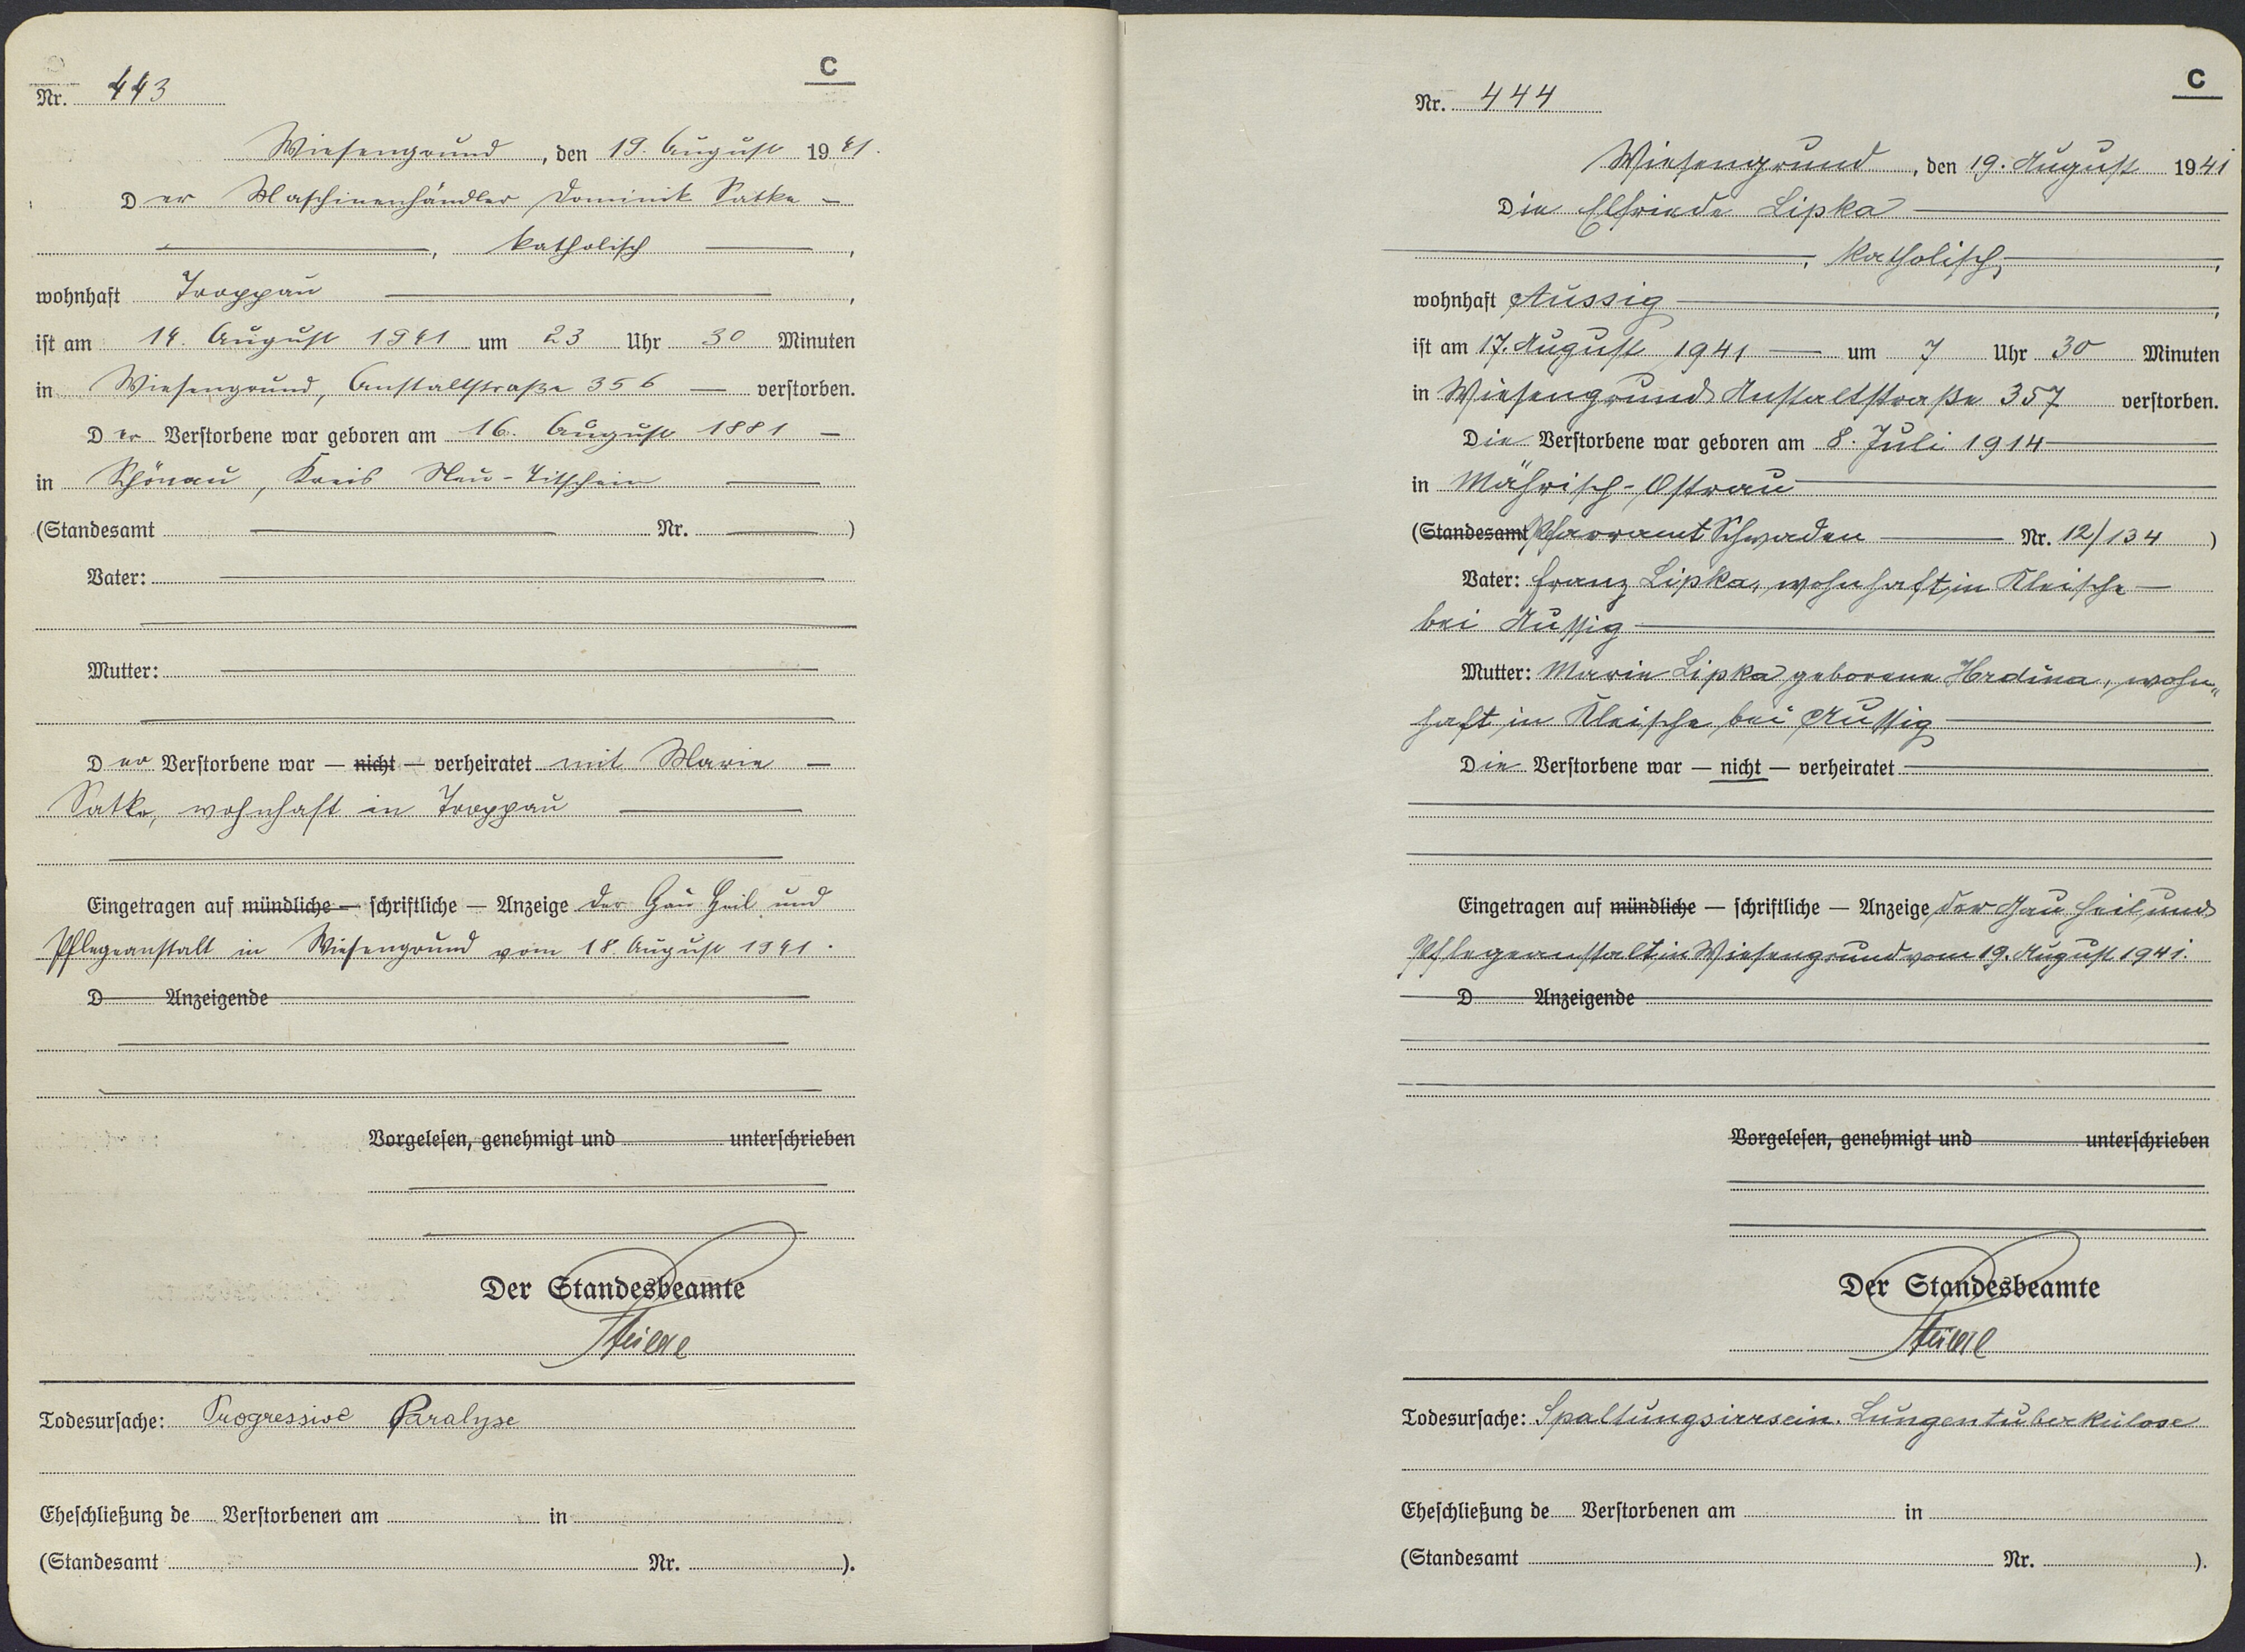 C
Nr. 443
Wiesengrund, den 19. August 1941.
Der Maschinenhändler Dominik Satke —
—, katholisch —,
wohnhaft Troppau —,
ist am 14. August 1941 um 23 Uhr 30 Minuten
in Wiesengrund, Anstaltstraße 356 — verstorben.
Der Verstorbene war geboren am 16. August 1881 —
in Schönau, Kreis Neu-Titschein —
(Standesamt — Nr. —)
Vater: —
Mutter: —
Der Verstorbene war — nicht — verheiratet mit Marie —
Satke, wohnhaft in Troppau —
Eingetragen auf mündliche — schriftliche — Anzeige der Gau Heil und
Pflegeanstalt in Wiesengrund vom 18. August 1941.
D Anzeigende
Vorgelesen, genehmigt und unterschrieben
Der Standesbeamte
Todesursache: Progressive Paralyse
Eheschließung de Verstorbenen am in
(Standesamt Nr. ).
C
Nr. 444
Wiesengrund, den 19. August 1941
Die Elfriede Lipka —
—, katholisch, —,
wohnhaft Aussig —,
ist am 17. August 1941 — um 7 Uhr 30 Minuten
in Wiesengrund Anstaltstraße 357 verstorben.
Die Verstorbene war geboren am 8. Juli 1914 —
in Mährisch-Ostrau —
(Standesamt Pfarramt Schwaden — Nr. 12/134 )
Vater: Franz Lipka, wohnhaft in Kleische —
bei Aussig —
Mutter: Marie Lipka geborene Hrdina, wohn„
haft in Kleische bei Aussig —
Die Verstorbene war — nicht — verheiratet —
Eingetragen auf mündliche — schriftliche — Anzeige der Gau Heil und
Pflegeanstalt in Wiesengrund vom 19. August 1941.
D Anzeigende
Vorgelesen, genehmigt und unterschrieben
Der Standesbeamte
Todesursache: Spaltungsirrsein. Lungentuberkulose
Eheschließung de Verstorbenen am in
(Standesamt Nr. ).